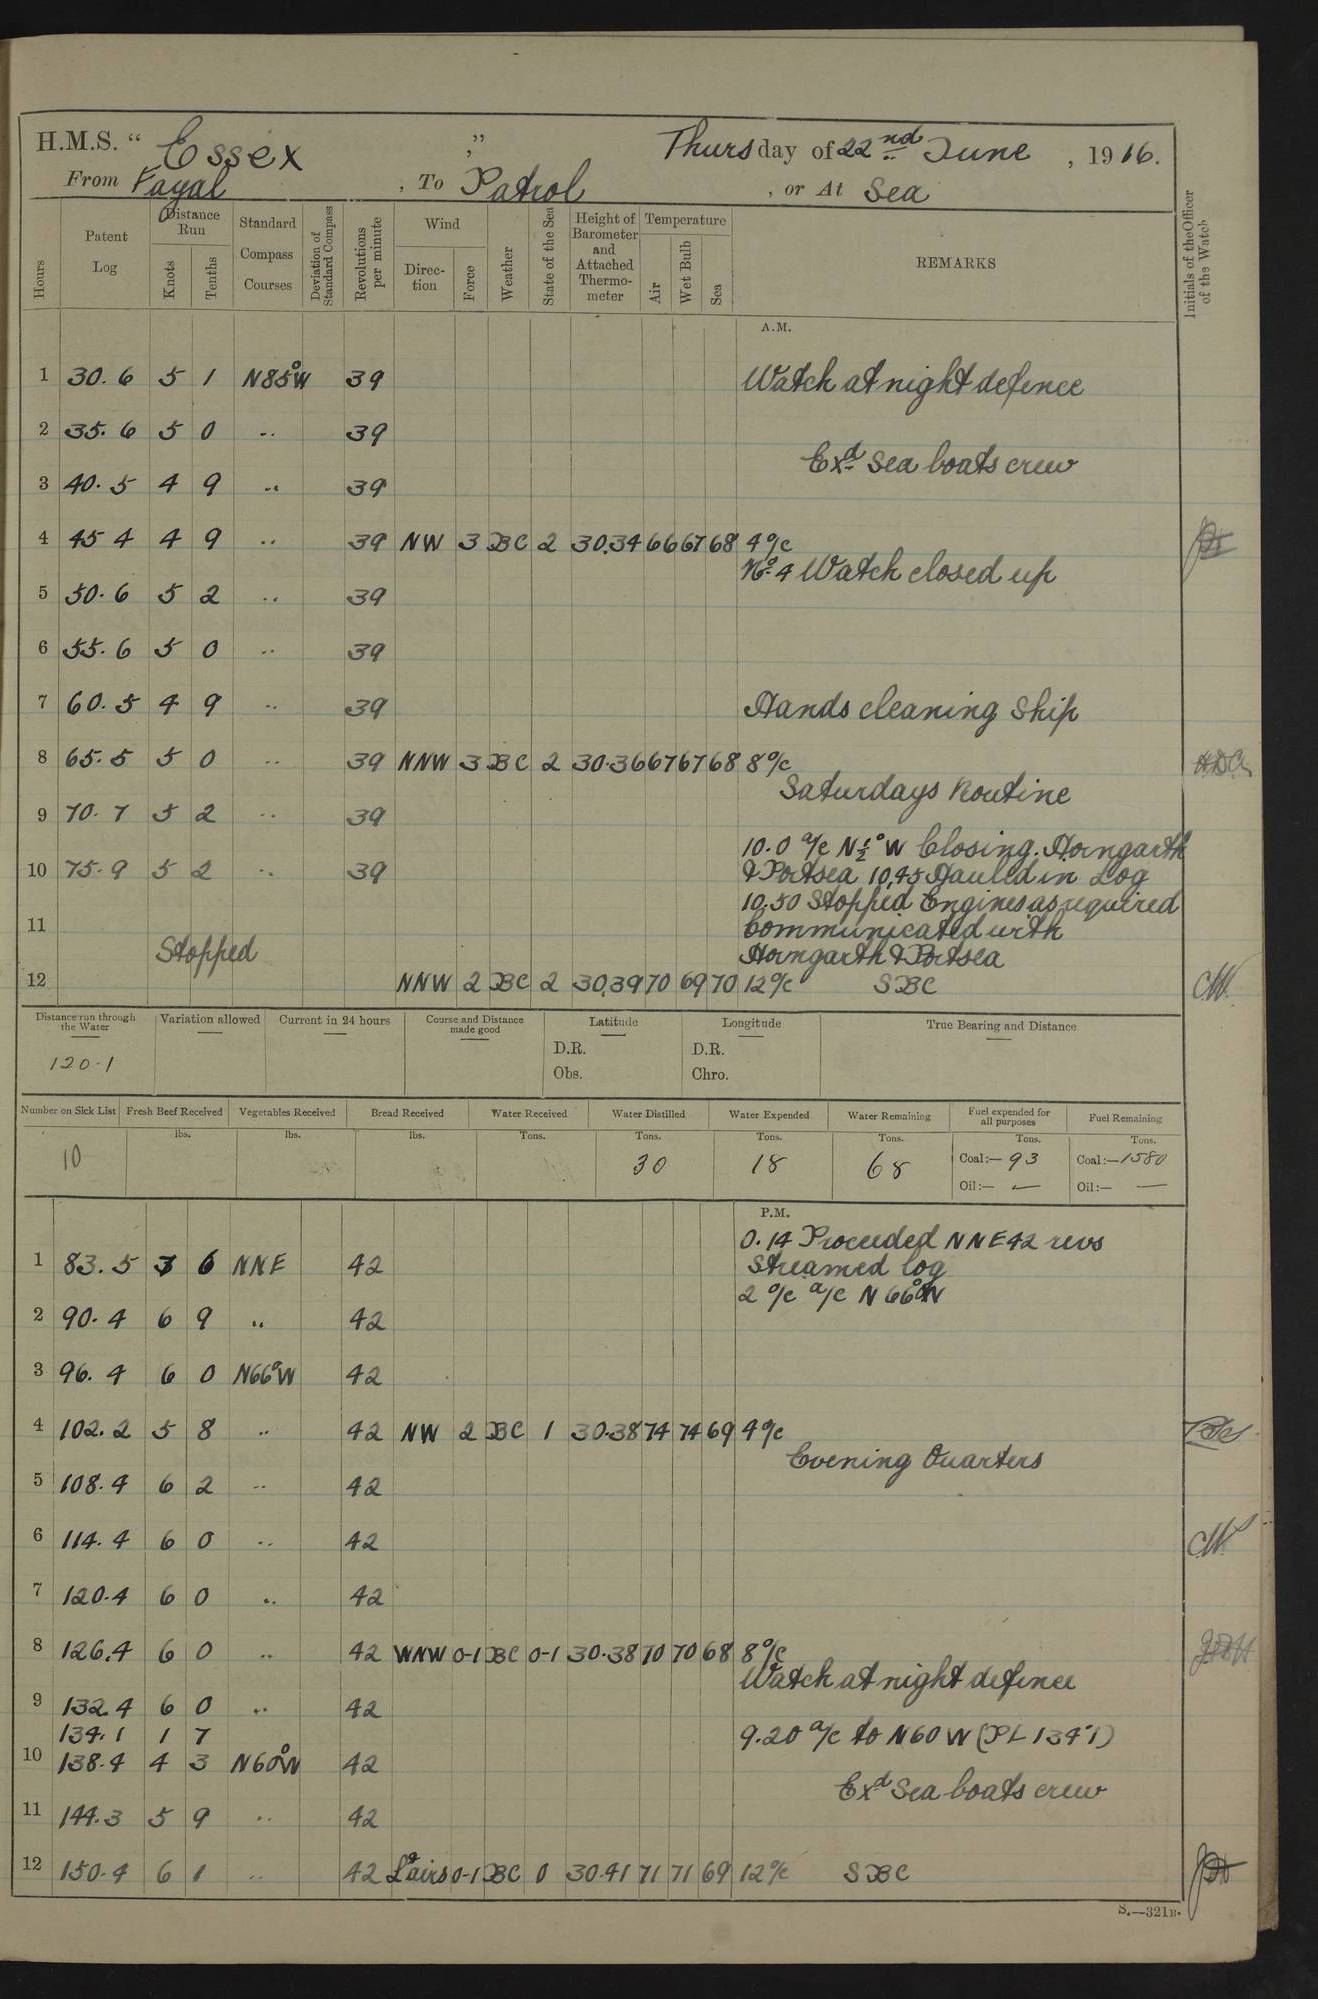 H.M.S. “ Essex ” Thursday of 22nd June , 1916.
From Fayal , To Patrol , or At Sea
Hours
Patent Log
Distance Run
Knots
Tenths
Standard Compass Courses
Deviation of Standard Compass
Revolutions per minute
Wind
Direction
Force
Weather
State of the Sea
Height of Barometer and Attached Thermometer
Temperature
Air
Wet Bulb
Sea
REMARKS
Initials of the Officer of the Watch
A.M.
1 30.6 5 1 N85°W 39 Watch at night defence
2 35.6 5 0 .. 39
Exd Sea boats crew
3 40.5 4 9 .. 39
4 45 4 4 9 .. 39 NW 3 BC 2 30.34 66 67 68 4 o/c
No 4 Watch closed up
5 50.6 5 2 .. 39
6 55.6 5 0 .. 39
7 60.5 4 9 .. 39 Hands cleaning Ship
8 65.5 5 0 .. 39 NNW 3 BC 2 30.36 67 67 68 8 o/c
Saturdays Routine
9 70.7 5 2 .. 39
10.0 a/c N½°W Closing. Horngarth
10 75.9 5 2 .. 39 & Portsea 10.45 Hauled in Log
10.50 Stopped Engines as required
11 Communicated with
Stopped Horngarth & Portsea
12 NNW 2 BC 2 30.39 70 69 70 12 o/c SBC CW.
Distance run through the Water
120.1
Variation allowed
Current in 24 hours
Course and Distance made good
Latitude
D.R.
Obs.
Longitude
D.R.
Chro.
True Bearing and Distance
Number on Sick List
10
Fresh Beef Received
lbs.
Vegetables Received
lbs.
Bread Received
lbs.
Water Received
Tons.
Water Distilled
Tons.
30
Water Expended
Tons.
18
Water Remaining
Tons.
68
Fuel expended for all purposes
Tons.
Coal:— 93
Oil:— —
Fuel Remaining
Tons.
Coal:— 1580
Oil:— —
P.M.
0.14 Proceeded NNE 42 revs
1 83.5 3 6 NNE 42 Streamed log
2 o/c a/c N66°W
2 90.4 6 9 .. 42
3 96.4 6 0 N66°W 42
4 102.2 5 8 .. 42 NW 2 BC 1 30.38 74 74 69 4 o/c
Evening Quarters
5 108.4 6 2 .. 42
6 114.4 6 0 .. 42 CW.
7 120.4 6 0 .. 42
8 126.4 6 0 .. 42 WNW 0-1 BC 0-1 30.38 70 70 68 8 o/c
Watch at night defence
9 132.4 6 0 .. 42
134.1 1 7 9.20 a/c to N60W (PL 134.1)
10 138.4 4 3 N60°W 42
Exd Sea boats crew
11 144.3 5 9 .. 42
12 150.4 6 1 .. 42 Lt airs 0-1 BC 0 30.41 71 71 69 12 o/c SBC
S.—321B.